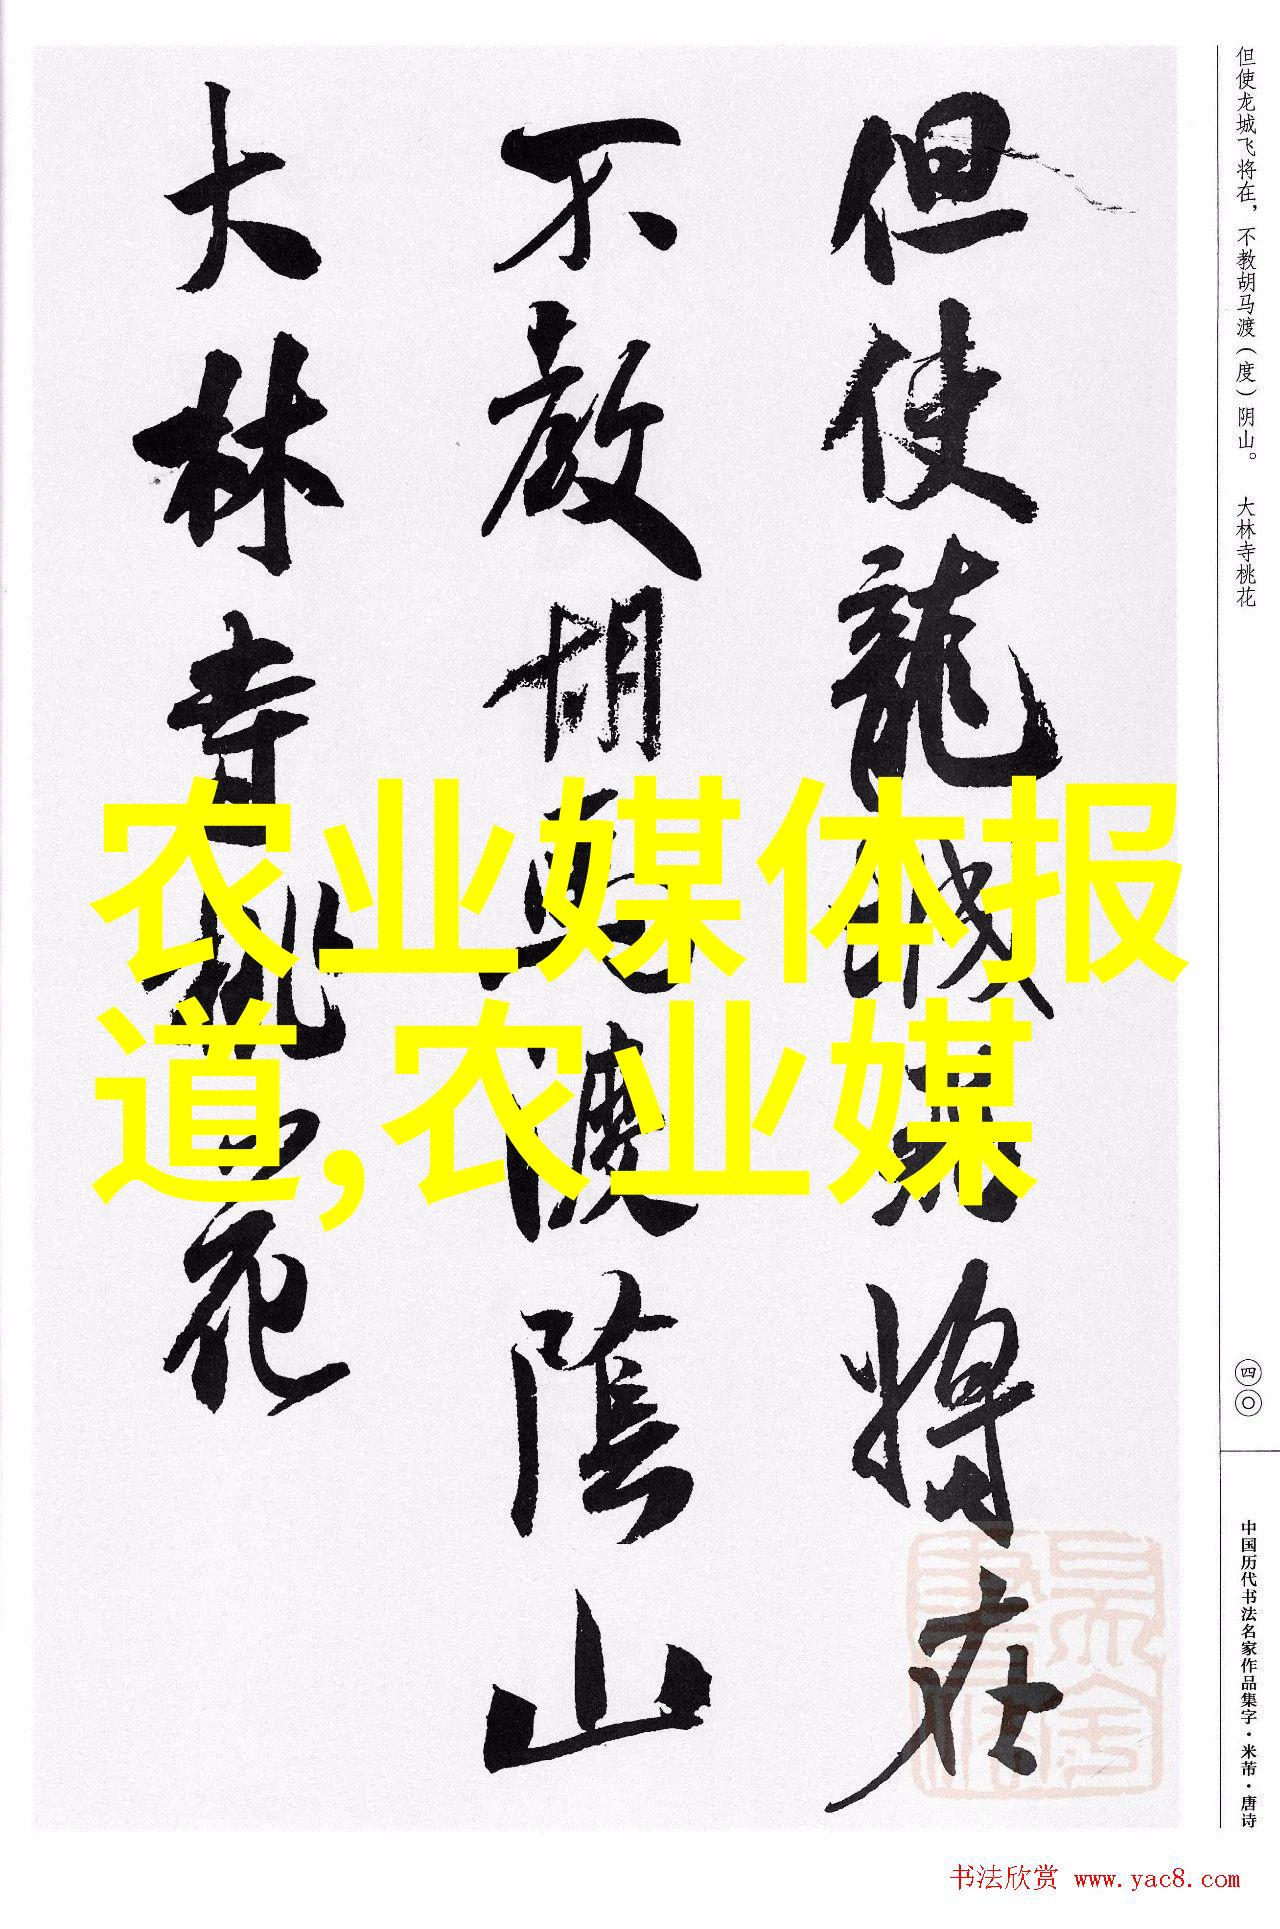 但使龙城飞将在，不教胡马渡（度）阴山。 大林寺桃花
但使龍城飛将在
不教胡馬渡陰山
大林寺桃花
农业媒体报
道,农业媒
四〇
中国历代书法名家作品集字·米芾·唐诗
书法欣赏 www.yac8.com